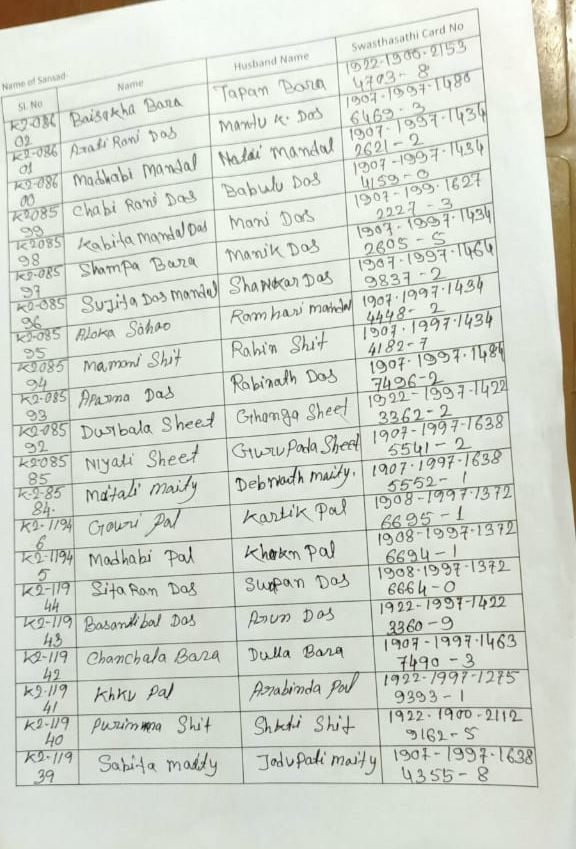 Name of Sansad
Sl. No Name Husband Name Swasthasathi Card No
K2-086 02 Baisakha Bara Tapan Bara 1922-1900-2153 4703-8
K2-086 01 Arati Rani Das Mantu K. Das 1907-1997-1480 6469-3
K2-086 00 Madhabi Mandal Mandal 1907-1997-1434 2621-2
K2085 99 Chabi Rani Das Babulu Das 1907-1997-1434 4159-0
K2085 98 Kabita Mandal Das Mani Das 1907-199-1627 2227-3
K2-085 97 Shampa Bara Manik Das 1907-1997-1434 2605-5
K2-085 96 Sujita Das Mandal Shankar Das 1907-1997-1464 9837-2
K2-085 95 Aloka Sahao Ramhari Mandal 1907-1997-1434 4448-2
K2085 94 Mamani Shit Rabin Shit 1907-1997-1434 4182-7
K2-085 93 Aparna Das Rabinath Das 1907-1997-1484 7496-2
K2-085 92 Durbala Sheet Ghanga Sheet 1922-1997-1422 3362-2
K2085 85 Niyati Sheet Guru Pada Sheet 1907-1997-1638 5541-2
K-2-85 84. Maitali Maity Debnath maity. 1907-1997-1638 5552-1
K2-1194 6 Gouri Pal Kartik Pal 1908-1997-1372 6695-1
K2-1194 5 Madhabi Pal Khokn Pal 1908-1997-1372 6694-1
K2-119 44 Sita Ran Das Supan Das 1908-1997-1372 6664-0
K2-119 43 Basantibal Das Arun Das 1922-1997-1422 3360-9
K2-119 42 Chanchala Bara Dulla Bara 1907-1997-1463 7490-3
K2-119 41 Khku Pal Arabinda Pal 1922-1997-1275 9393-1
K2-119 40 Purimma Shit Shit 1922-1900-2112 9162-5
K2-119 39 Sabita maity Jadupati maity 1907-1997-1638 4355-8